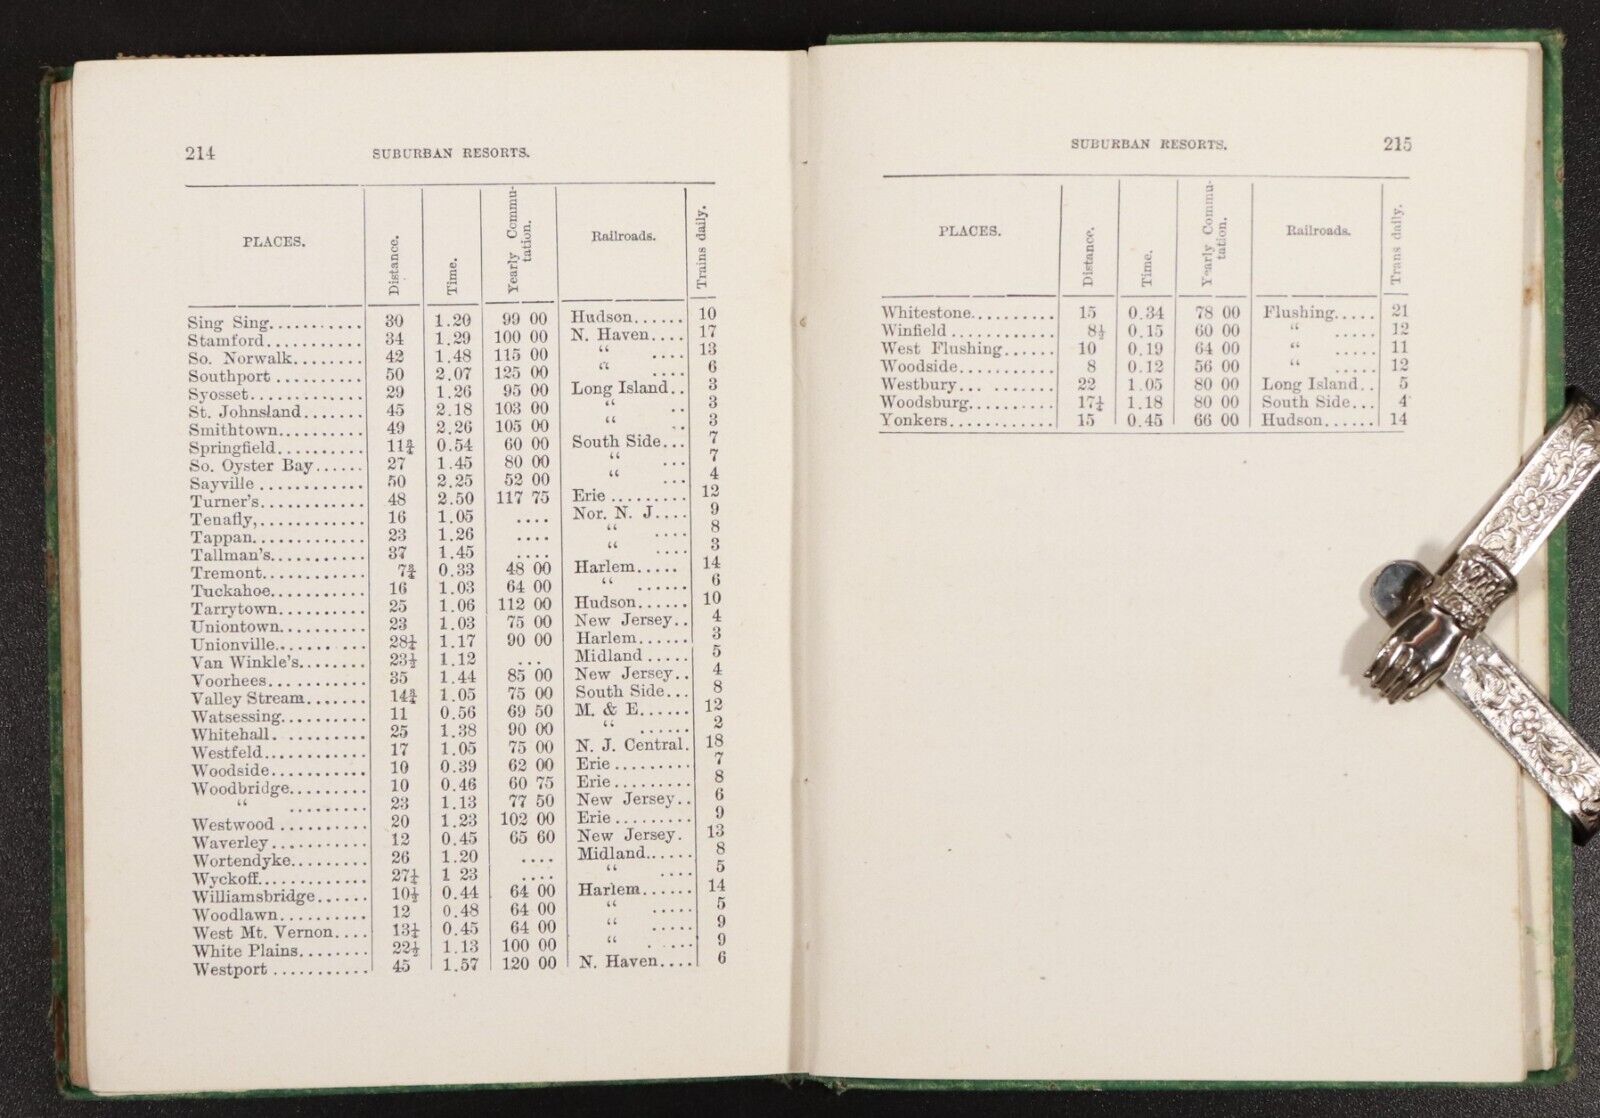 214 SUBURBAN RESORTS.
PLACES. Distance. Time. Yearly Commutation. Railroads. Trains daily.
Sing Sing........... 30 1.20 99 00 Hudson...... 10
Stamford........... 34 1.29 100 00 N. Haven.... 17
So. Norwalk........ 42 1.48 115 00 “ .... 13
Southport .......... 50 2.07 125 00 “ .... 6
Syosset............. 29 1.26 95 00 Long Island.. 3
St. Johnsland....... 45 2.18 103 00 “ .. 3
Smithtown.......... 49 2.26 105 00 “ .. 3
Springfield.......... 11¾ 0.54 60 00 South Side... 7
So. Oyster Bay...... 27 1.45 80 00 “ ... 7
Sayville ............ 50 2.25 52 00 “ ... 4
Turner's............ 48 2.50 117 75 Erie ......... 12
Tenafly,............ 16 1.05 .... Nor. N. J.... 9
Tappan............. 23 1.26 .... “ .... 8
Tallman's........... 37 1.45 .... “ .... 3
Tremont............ 7¾ 0.33 48 00 Harlem..... 14
Tuckahoe........... 16 1.03 64 00 “ ...... 6
Tarrytown.......... 25 1.06 112 00 Hudson...... 10
Uniontown.......... 23 1.03 75 00 New Jersey.. 4
Unionville........... 28¼ 1.17 90 00 Harlem...... 3
Van Winkle's........ 23½ 1.12 ... Midland ..... 5
Voorhees........... 35 1.44 85 00 New Jersey.. 4
Valley Stream....... 14¾ 1.05 75 00 South Side... 8
Watsessing.......... 11 0.56 69 50 M. & E...... 12
Whitehall. ......... 25 1.38 90 00 “ ...... 2
Westfeld............ 17 1.05 75 00 N. J. Central. 18
Woodside........... 10 0.39 62 00 Erie ......... 7
Woodbridge......... 10 0.46 60 75 Erie ......... 8
“ ......... 23 1.13 77 50 New Jersey.. 6
Westwood .......... 20 1.23 102 00 Erie ......... 9
Waverley........... 12 0.45 65 60 New Jersey. 13
Wortendyke......... 26 1.20 .... Midland...... 8
Wyckoff............. 27¼ 1 23 .... “ .... 5
Williamsbridge...... 10½ 0.44 64 00 Harlem...... 14
Woodlawn.......... 12 0.48 64 00 “ ..... 5
West Mt. Vernon.... 13¼ 0.45 64 00 “ ..... 9
White Plains........ 22½ 1.13 100 00 “ ..... 9
Westport ........... 45 1.57 120 00 N. Haven.... 6
SUBURBAN RESORTS. 215
PLACES. Distance. Time. Yearly Commutation. Railroads. Trans daily.
Whitestone.......... 15 0.34 78 00 Flushing..... 21
Winfield ............ 8½ 0.15 60 00 “ ..... 12
West Flushing...... 10 0.19 64 00 “ ..... 11
Woodside........... 8 0.12 56 00 “ ..... 12
Westbury... ....... 22 1.05 80 00 Long Island.. 5
Woodsburg.......... 17¼ 1.18 80 00 South Side... 4
Yonkers............ 15 0.45 66 00 Hudson...... 14